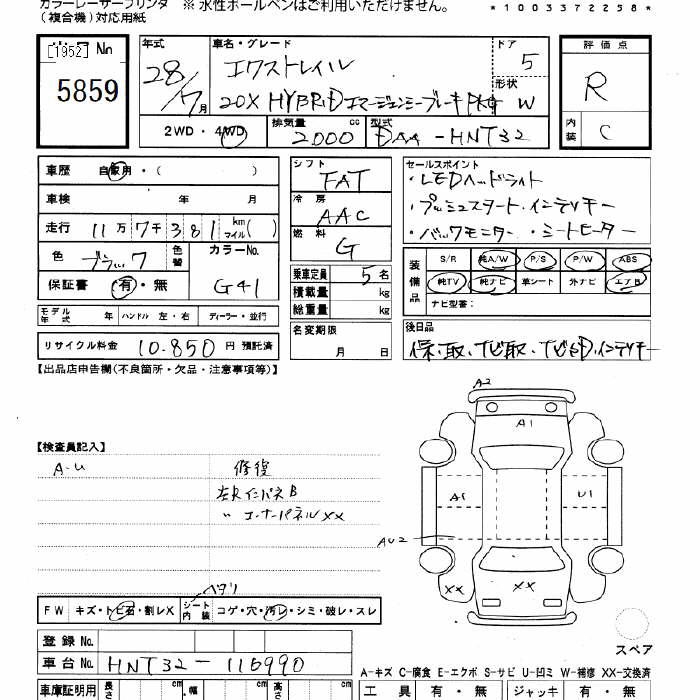 カラーレーザープリンタ
(複合機)対応用紙
※ 水性ボールペンはご利用いただけません。
*1003372258*
[1952] No
5859
年式
28/7月
車名・グレード
エクストレイル
20X HYBRIDエマージェンシーブレーキPKG
ドア
5
形状
W
評価点
R
内装
C
2WD・4WD
排気量
2000
cc
型式
DAA-HNT32
車歴
自家用・( )
車検 年 月
走行 11万7千381 km マイル( )
色 ブラック 色替
カラーNo.
G41
保証書 有・無
シフト
FAT
冷房
AAC
燃料
G
乗車定員 5名
積載量 kg
総重量 kg
名変期限
月 日
セールスポイント
・LEDヘッドライト
・プッシュスタート・インテリキー
・バックモニター・シートヒーター
装備品
S/R 純A/W P/S P/W ABS
純TV 純ナビ 革シート 外ナビ エアB
ナビ型番:
モデル年式 年 ハンドル 左・右 ディーラー・並行
リサイクル料金 10.850 円 預託済
後日品
保・取、ナビ取、ナビSD、インテリキー
【出品店申告欄(不良箇所・欠品・注意事項等)】
【検査員記入】
A-U
修復
左Rインパネ B
〃 コーナーパネル XX
A2
A1
A1
U1
AU2
XX
XX
スペア
ヘタリ
FW キズ・トビ石・割レX
シート内装 コゲ・穴・汚レ・シミ・破レ・スレ
登録 No.
車台 No. HNT32-116990
A-キズ C-腐食 E-エクボ S-サビ U-凹ミ W-補修 XX-交換済
車庫証明用 長さ cm ・幅 cm 高さ cm
工具 有・無 ジャッキ 有・無